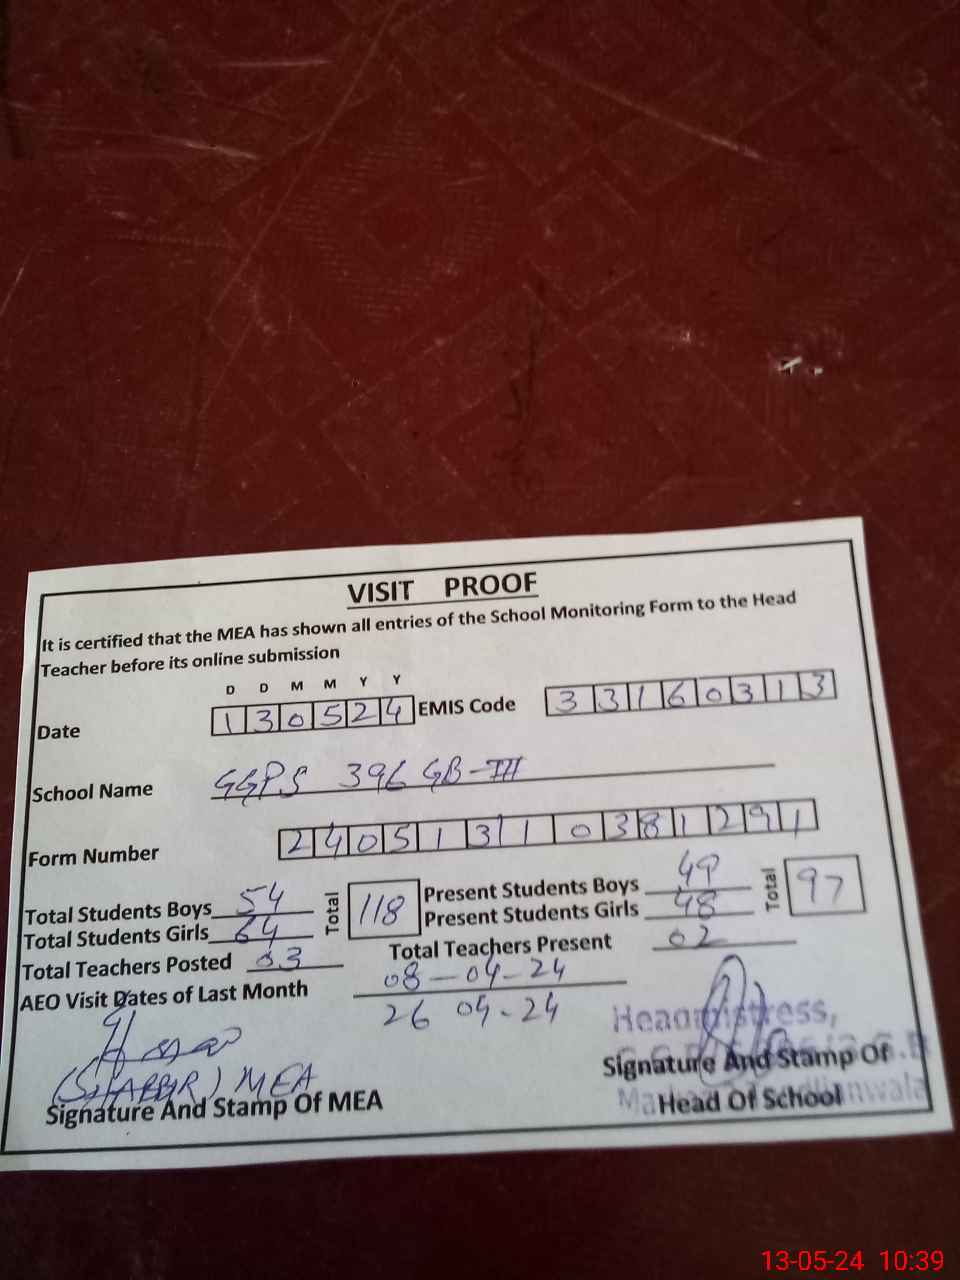 VISIT PROOF
It is certified that the MEA has shown all entries of the School Monitoring Form to the Head
Teacher before its online submission
D D M M Y Y
Date 130524 EMIS Code 33160313
School Name GGPS 396 GB-III
Form Number 24051310381291
Total Students Boys 54 Total 118 Present Students Boys 49 Total 97
Total Students Girls 64 Present Students Girls 48
Total Teachers Posted 03 Total Teachers Present 02
AEO Visit Dates of Last Month 08-04-24
26 04-24
Headmistress,
(SHABBIR) MEA
Signature And Stamp Of MEA
Signature And Stamp Of
Head Of School
13-05-24 10:39